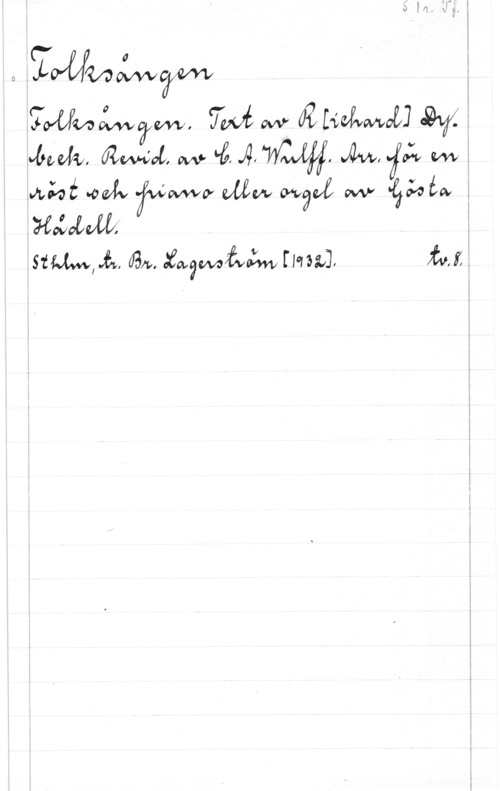 S 1 r. Pf.
Folksången
Folksången. Text av R[ichard] Dy-
beck. Revid. av C. A. Wulff. Arr. för en
röst och piano eller orgel av Gösta
Hådell.
Sthlm, tr. Br. Lagerström [1932]. tv. 8.